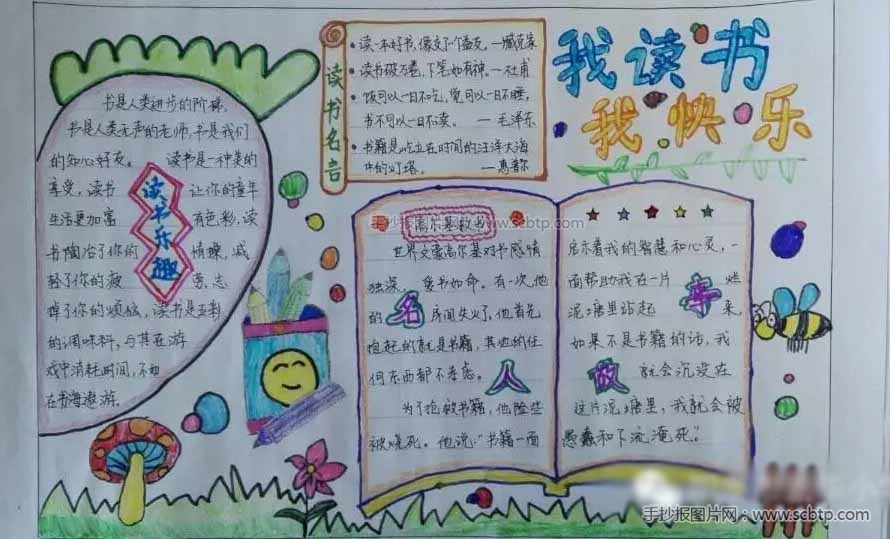 我读书
我快乐
读书名言
读一本好书,像交了一个益友。—臧克家
读书破万卷,下笔如有神。—杜甫
饭可以一日不吃,觉可以一日不睡,
书不可以一日不读。 —毛泽东
书籍是屹立在时间的汪洋大海
中的灯塔。 —惠普尔
书是人类进步的阶梯。
书是人类无声的老师,书是我们
的知心好友。 读书是一种美的
享受,读书 让你的童年
生活更加富 有色彩,读
书陶冶了你的 情操,减
轻了你的疲 劳,忘
掉了你的烦恼,读书是五彩
的调味料,与其在游
戏中消耗时间,不如
在书海遨游.
读书乐趣
高尔基救书
世界文豪高尔基对书感情
独深, 爱书如命。有一次他
的 房间失火了,他首先
抱起的就是书籍,其他的任
何东西都不考虑。
为了抢救书籍,他险些
被烧死。他说:“书籍一面
启示着我的智慧和心灵,一
面帮助我在一片 烂
泥塘里站起 来,
如果不是书籍的话,我
就会沉没在
这片泥塘里,我就会被
愚蠢和下流淹死。”
名
人
故
事
手抄报图片网 www.scbtp.com
手抄报图片网:www.scbtp.com